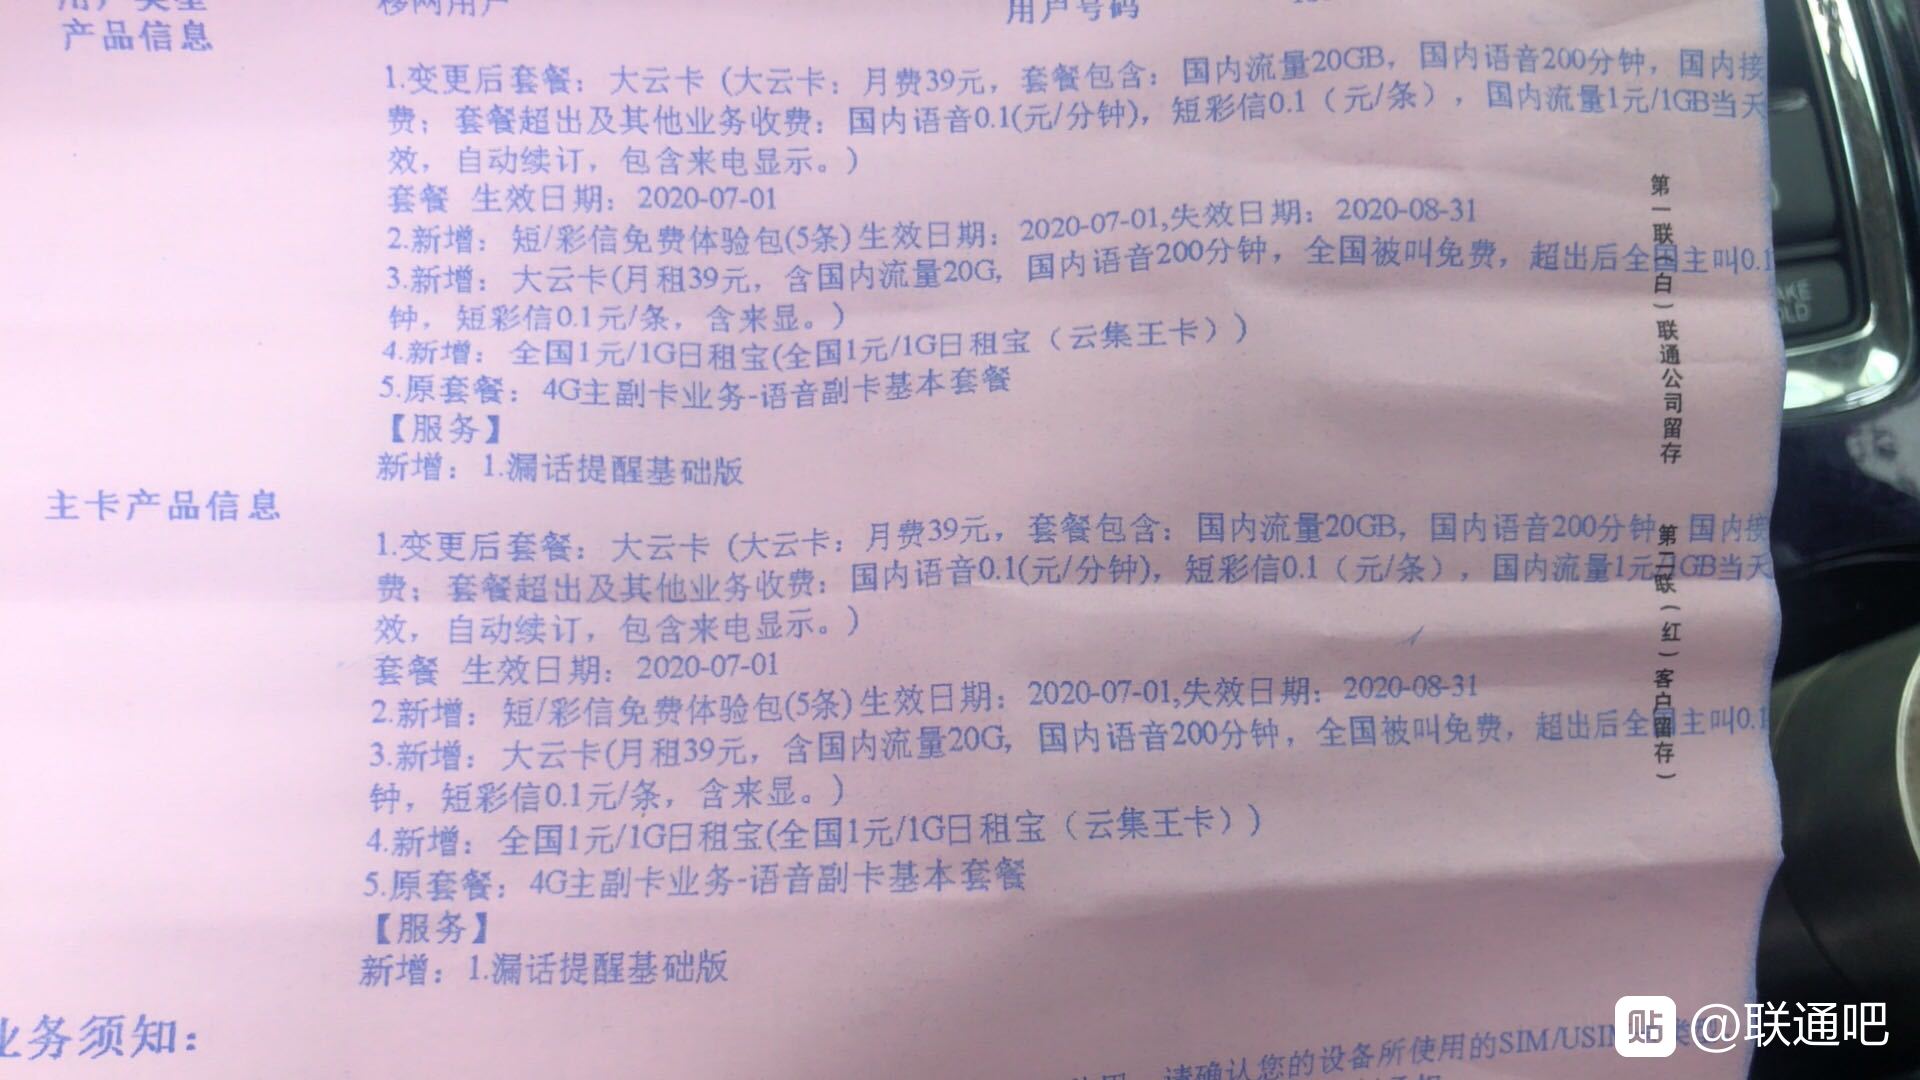 用户类型 移网用户 用户号码
产品信息
1.变更后套餐：大云卡（大云卡：月费39元，套餐包含：国内流量20GB，国内语音200分钟，国内接
费；套餐超出及其他业务收费：国内语音0.1(元/分钟)，短彩信0.1（元/条），国内流量1元/1GB当天
效，自动续订，包含来电显示。）
套餐 生效日期：2020-07-01
2.新增：短/彩信免费体验包(5条)生效日期：2020-07-01,失效日期：2020-08-31
3.新增：大云卡(月租39元，含国内流量20G，国内语音200分钟，全国被叫免费，超出后全国主叫0.1
钟，短彩信0.1元/条，含来显。）
4.新增：全国1元/1G日租宝(全国1元/1G日租宝（云集王卡））
5.原套餐：4G主副卡业务-语音副卡基本套餐
【服务】
新增：1.漏话提醒基础版
主卡产品信息
1.变更后套餐：大云卡（大云卡：月费39元，套餐包含：国内流量20GB，国内语音200分钟，国内接
费；套餐超出及其他业务收费：国内语音0.1(元/分钟)，短彩信0.1（元/条），国内流量1元/1GB当天
效，自动续订，包含来电显示。）
套餐 生效日期：2020-07-01
2.新增：短/彩信免费体验包(5条)生效日期：2020-07-01,失效日期：2020-08-31
3.新增：大云卡(月租39元，含国内流量20G，国内语音200分钟，全国被叫免费，超出后全国主叫0.1
钟，短彩信0.1元/条，含来显。）
4.新增：全国1元/1G日租宝(全国1元/1G日租宝（云集王卡））
5.原套餐：4G主副卡业务-语音副卡基本套餐
【服务】
新增：1.漏话提醒基础版
业务须知：
请确认您的设备所使用的SIM/USIM
第一联（白）联通公司留存
第二联（红）客户留存）
贴 @联通吧